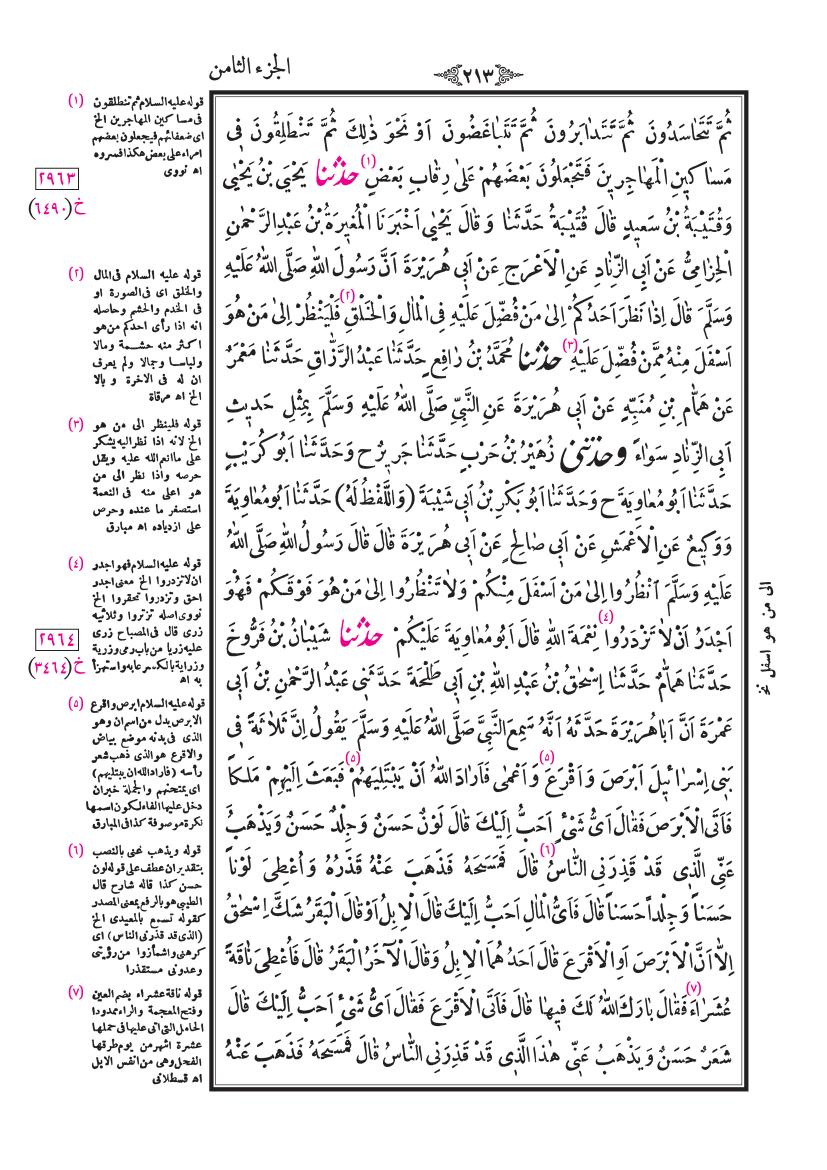 الجزء الثامن
٢١٣
ثُمَّ تَتَحَاسَدُونَ ثُمَّ تَتَدَابَرُونَ ثُمَّ تَتَبَاغَضُونَ اَوْ نَحْوَ ذٰلِكَ ثُمَّ تَنْطَلِقُونَ فِى
مَسَاكِينِ الْمُهَاجِرِينَ فَتَجْعَلُونَ بَعْضَهُمْ عَلىٰ رِقَابِ بَعْضٍ (١) حَدَّثَنَا يَحْيَى بْنُ يَحْيٰى
وَقُتَيْبَةُ بْنُ سَعِيدٍ قَالَ قُتَيْبَةُ حَدَّثَنَا وَقَالَ يَحْيٰى اَخْبَرَنَا الْمُغِيرَةُ بْنُ عَبْدِ الرَّحْمٰنِ
الْحِزَامِىُّ عَنْ اَبِى الزِّنَادِ عَنِ الْاَعْرَجِ عَنْ اَبِى هُرَيْرَةَ اَنَّ رَسُولَ اللهِ صَلَّى اللهُ عَلَيْهِ
وَسَلَّمَ قَالَ اِذَا نَظَرَ اَحَدُكُمْ اِلىٰ مَنْ فُضِّلَ عَلَيْهِ فِى الْمَالِ وَالْخَلْقِ (٢) فَلْيَنْظُرْ اِلىٰ مَنْ هُوَ
اَسْفَلَ مِنْهُ مِمَّنْ فُضِّلَ عَلَيْهِ (٣) حَدَّثَنَا مُحَمَّدُ بْنُ رَافِعٍ حَدَّثَنَا عَبْدُ الرَّزَّاقِ حَدَّثَنَا مَعْمَرٌ
عَنْ هَمَّامِ بْنِ مُنَبِّهٍ عَنْ اَبِى هُرَيْرَةَ عَنِ النَّبِىِّ صَلَّى اللهُ عَلَيْهِ وَسَلَّمَ بِمِثْلِ حَديثِ
اَبِى الزِّنَادِ سَوَاءً وَحَدَّثَنِى زُهَيْرُ بْنُ حَرْبٍ حَدَّثَنَا جَرِيرٌ ح وَحَدَّثَنَا اَبُو كُرَيْبٍ
حَدَّثَنَا اَبُو مُعَاوِيَةَ ح وَحَدَّثَنَا اَبُو بَكْرِ بْنُ اَبِى شَيْبَةَ (وَاللَّفْظُ لَهُ) حَدَّثَنَا اَبُو مُعَاوِيَةَ
وَوَكِيعٌ عَنِ الْاَعْمَشِ عَنْ اَبِى صَالِحٍ عَنْ اَبِى هُرَيْرَةَ قَالَ قَالَ رَسُولُ اللهِ صَلَّى اللهُ
عَلَيْهِ وَسَلَّمَ اُنْظُرُوا اِلىٰ مَنْ اَسْفَلَ مِنْكُمْ وَلَا تَنْظُرُوا اِلىٰ مَنْ هُوَ فَوْقَكُمْ فَهُوَ
اَجْدَرُ اَنْ لَا تَزْدَرُوا (٤) نِعْمَةَ اللهِ قَالَ اَبُو مُعَاوِيَةَ عَلَيْكُمْ حَدَّثَنَا شَيْبَانُ بْنُ فَرُّوخَ
حَدَّثَنَا هَمَّامٌ حَدَّثَنَا اِسْحٰقُ بْنُ عَبْدِ اللهِ بْنِ اَبِى طَلْحَةَ حَدَّثَنِى عَبْدُ الرَّحْمٰنِ بْنُ اَبِى
عَمْرَةَ اَنَّ اَبَا هُرَيْرَةَ حَدَّثَهُ اَنَّهُ سَمِعَ النَّبِىَّ صَلَّى اللهُ عَلَيْهِ وَسَلَّمَ يَقُولُ اِنَّ ثَلَاثَةً فِى
بَنِى اِسْرَائِيلَ اَبْرَصَ وَاَقْرَعَ (٥) وَاَعْمٰى فَاَرَادَ اللهُ اَنْ يَبْتَلِيَهُمْ (٥) فَبَعَثَ اِلَيْهِمْ مَلَكاً
فَاَتَى الْاَبْرَصَ فَقَالَ اَىُّ شَىْءٍ اَحَبُّ اِلَيْكَ قَالَ لَوْنٌ حَسَنٌ وَجِلْدٌ حَسَنٌ وَيَذْهَبُ
عَنِّى الَّذِى قَدْ قَذِرَنِى النَّاسُ (٦) قَالَ فَمَسَحَهُ فَذَهَبَ عَنْهُ قَذَرُهُ وَاُعْطِىَ لَوْناً
حَسَناً وَجِلْداً حَسَناً قَالَ فَاَىُّ الْمَالِ اَحَبُّ اِلَيْكَ قَالَ الْاِبِلُ اَوْ قَالَ الْبَقَرُ شَكَّ اِسْحٰقُ
اِلَّا اَنَّ الْاَبْرَصَ اَوِ الْاَقْرَعَ قَالَ اَحَدُهُمَا الْاِبِلُ وَقَالَ الْآخَرُ الْبَقَرُ قَالَ فَاُعْطِىَ نَاقَةً
عُشَرَاءَ (٧) فَقَالَ بَارَكَ اللهُ لَكَ فِيهَا قَالَ فَاَتَى الْاَقْرَعَ فَقَالَ اَىُّ شَىْءٍ اَحَبُّ اِلَيْكَ قَالَ
شَعَرٌ حَسَنٌ وَيَذْهَبُ عَنِّى هٰذَا الَّذِى قَدْ قَذِرَنِى النَّاسُ قَالَ فَمَسَحَهُ فَذَهَبَ عَنْهُ
(١) قوله عليه السلام ثم تنطلقون
فى مساكين المهاجرين الخ
اى ضعفائهم فيجعلون بعضهم
امراء على بعض هكذا فسروه
اه نووى
٢٩٦٣
خ (٦٤٩٠)
(٢) قوله عليه السلام فى المال
والخلق اى فى الصورة او
فى الخدم والحشم وحاصله
انه اذا رأى احدكم من هو
اكثر منه حشمة ومالا
ولباسا وجمالا ولم يعرف
ان له فى الاخرة وبالا
الخ اه مرقاة
(٣) قوله فلينظر الى من هو
الخ لانه اذا نظر اليه يشكر
على ما انعم الله عليه ويقل
حرصه واذا نظر الى من
هو اعلى منه فى النعمة
استصغر ما عنده وحرص
على ازدياده اه مبارق
(٤) قوله عليه السلام فهو اجدر
ان لا تزدروا الخ معنى اجدر
احق وتزدروا تحقروا الخ
نووى اصله تزتروا وثلاثيه
زرى قال فى المصباح زرى
عليه زريا من باب رمى وزرية
وزراية بالكسر عابه واستهزأ
به اه
٢٩٦٤
خ (٣٤٦٤)
(٥) قوله عليه السلام ابرص واقرع
الابرص بدل من اسم ان وهو
الذى فى بدنه موضع بياض
والاقرع هو الذى ذهب شعر
رأسه (فاراد الله ان يبتليهم)
اى يمتحنهم والجملة خبر ان
دخل عليها الفاء لكون اسمها
نكرة موصوفة كذا فى المبارق
(٦) قوله ويذهب عنى بالنصب
بتقدير ان عطف على قوله لون
حسن كذا قاله شارح قال
الطيبى هو بالرفع بمعنى المصدر
كقوله تسمع بالمعيدى الخ
(الذى قد قذرنى الناس) اى
كرهنى واشمأزوا من رؤيتى
وعدونى مستقذرا
(٧) قوله ناقة عشراء بضم العين
وفتح المعجمة والراء ممدودا
الحامل التى اتى عليها فى حملها
عشرة اشهر من يوم طرقها
الفحل وهى من انفس الابل
اه قسطلانى
الى من هو اسفل نخ